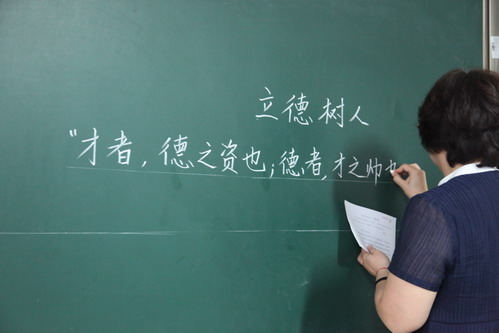 立德树人
“才者，德之资也；德者，才之帅也